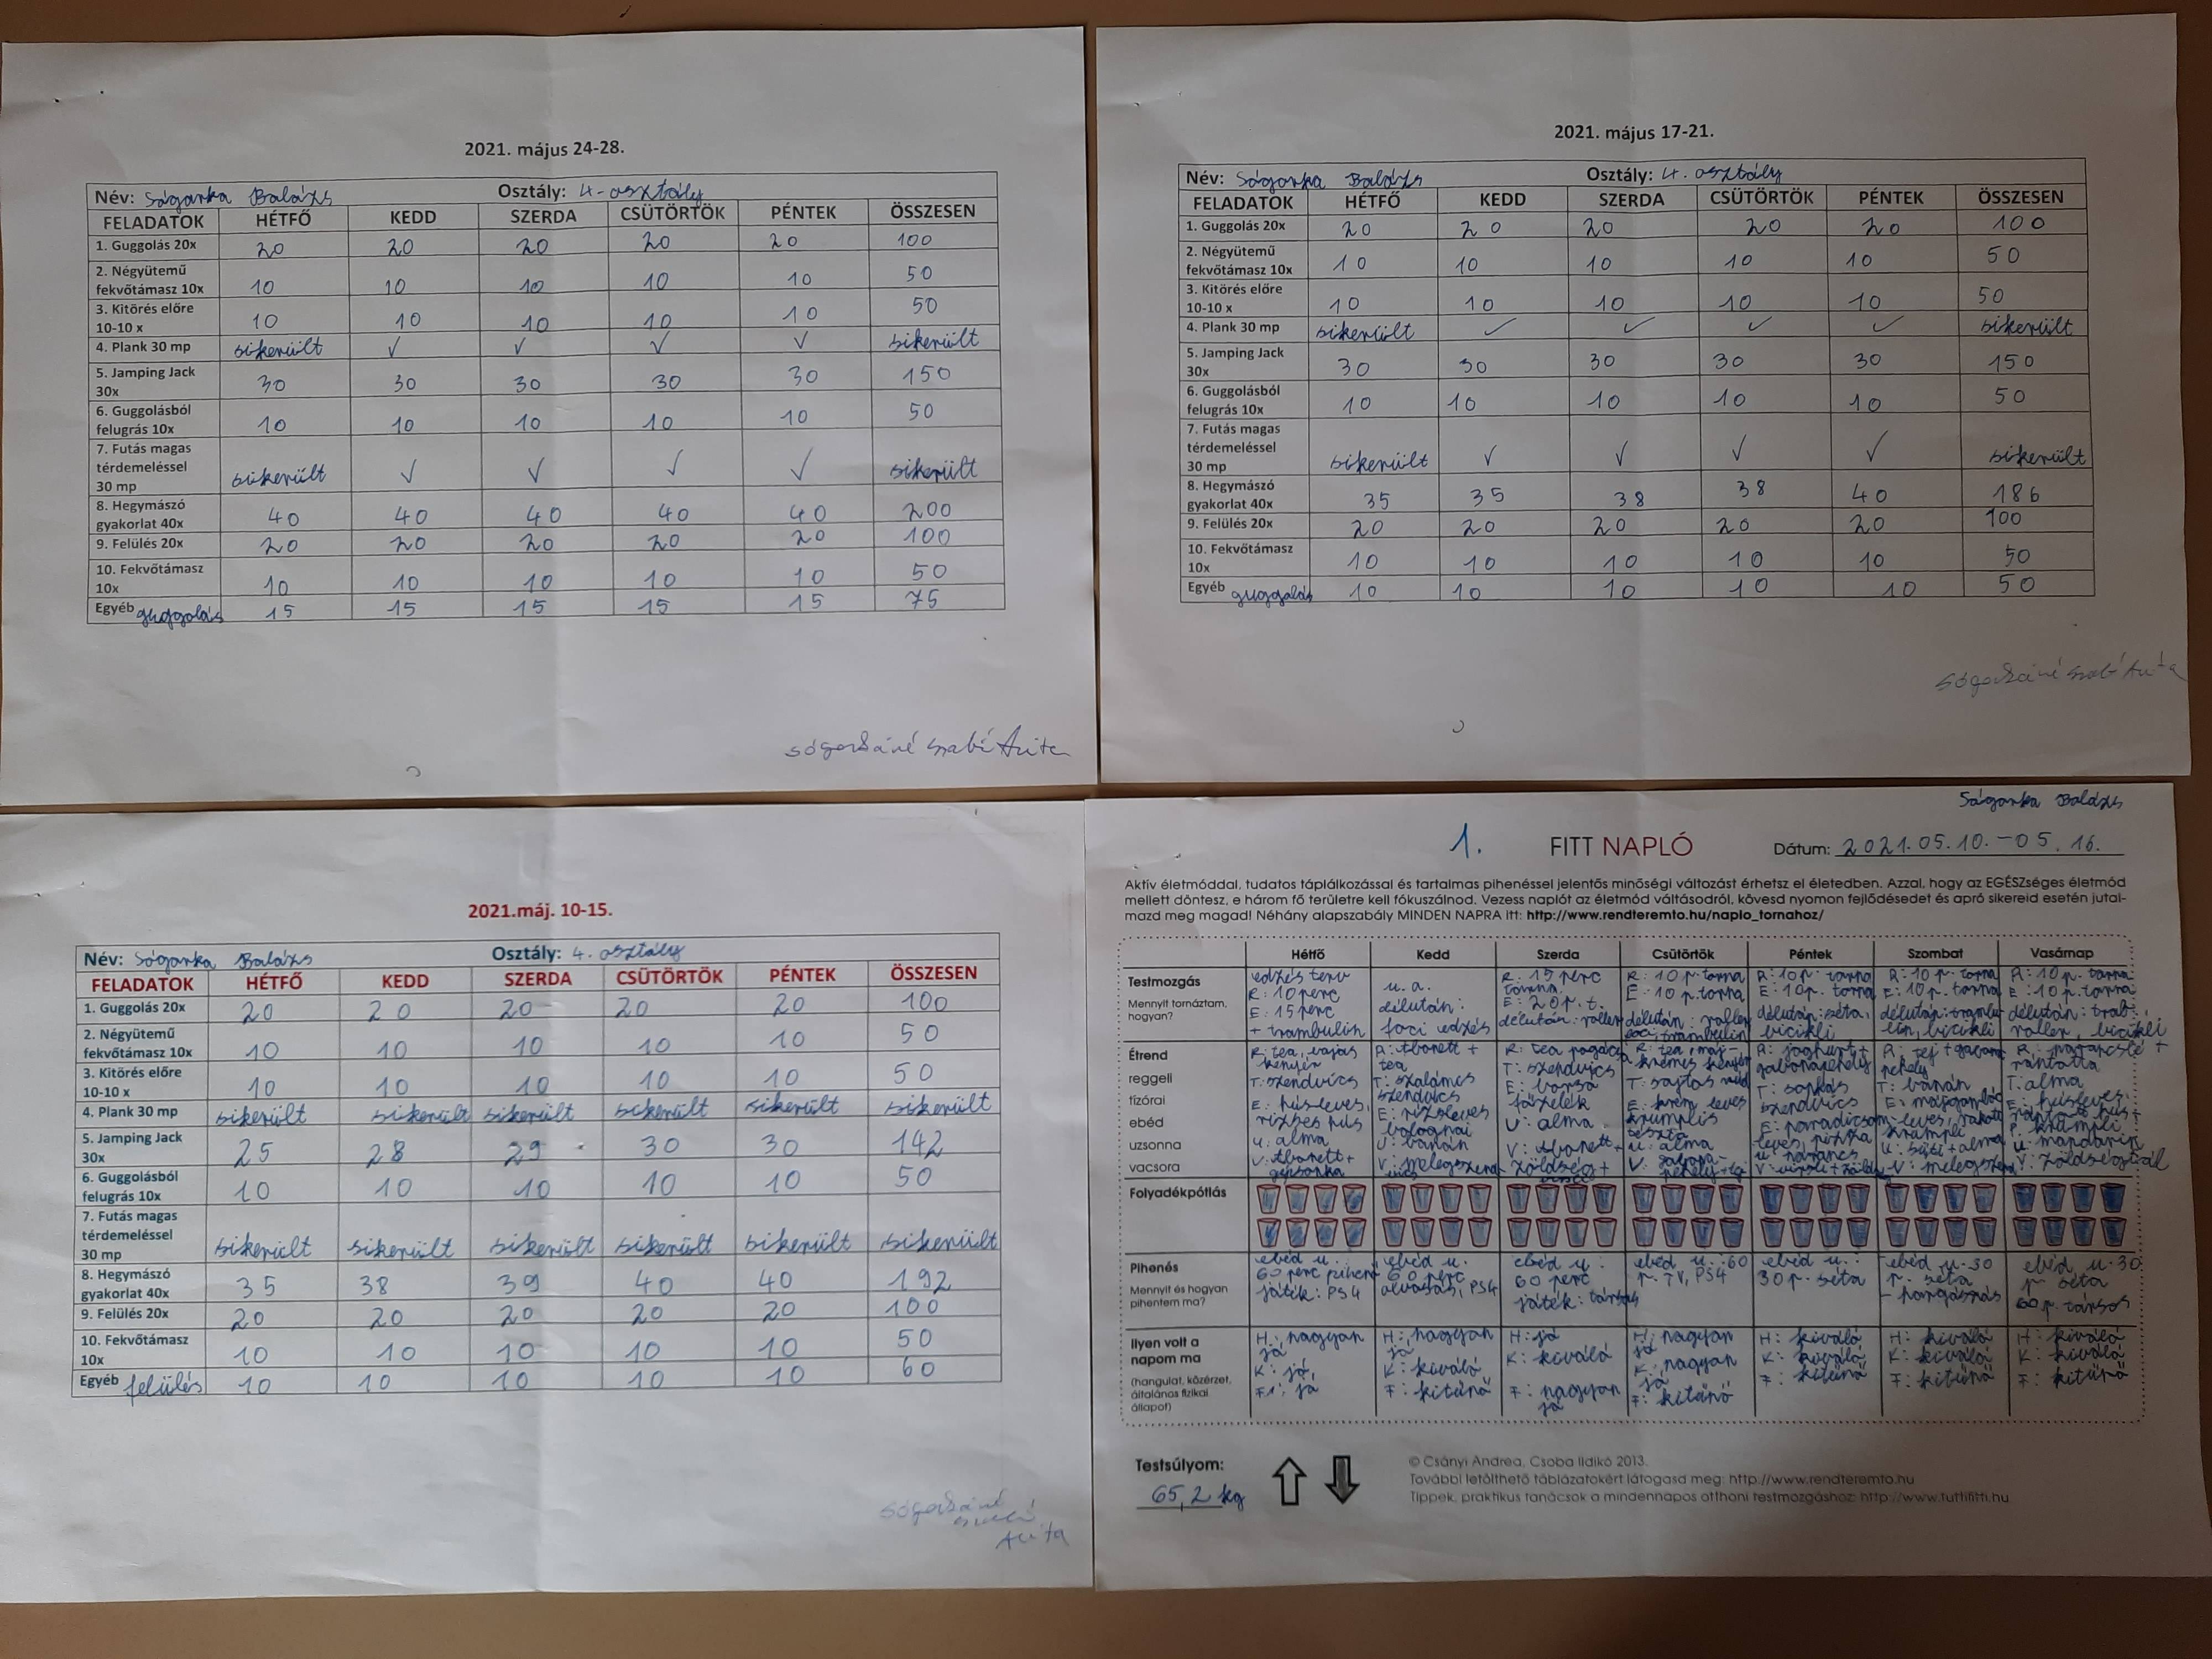 2021. május 24-28.
Név: Sóganka Balázs Osztály: 4. osztály
FELADATOK HÉTFŐ KEDD SZERDA CSÜTÖRTÖK PÉNTEK ÖSSZESEN
1. Guggolás 20x 20 20 20 20 20 100
2. Négyütemű
fekvőtámasz 10x 10 10 10 10 10 50
3. Kitörés előre
10-10 x 10 10 10 10 10 50
4. Plank 30 mp sikerült ✓ ✓ ✓ ✓ sikerült
5. Jamping Jack
30x 30 30 30 30 30 150
6. Guggolásból
felugrás 10x 10 10 10 10 10 50
7. Futás magas
térdemeléssel
30 mp sikerült ✓ ✓ ✓ ✓ sikerült
8. Hegymászó
gyakorlat 40x 40 40 40 40 40 200
9. Felülés 20x 20 20 20 20 20 100
10. Fekvőtámasz
10x 10 10 10 10 10 50
Egyéb guggolás 15 15 15 15 15 75
2021. május 17-21.
Név: Sóganka Balázs Osztály: 4. osztály
FELADATOK HÉTFŐ KEDD SZERDA CSÜTÖRTÖK PÉNTEK ÖSSZESEN
1. Guggolás 20x 20 20 20 20 20 100
2. Négyütemű
fekvőtámasz 10x 10 10 10 10 10 50
3. Kitörés előre
10-10 x 10 10 10 10 10 50
4. Plank 30 mp sikerült ✓ ✓ ✓ ✓ sikerült
5. Jamping Jack
30x 30 30 30 30 30 150
6. Guggolásból
felugrás 10x 10 10 10 10 10 50
7. Futás magas
térdemeléssel
30 mp sikerült ✓ ✓ ✓ ✓ sikerült
8. Hegymászó
gyakorlat 40x 35 35 38 38 40 186
9. Felülés 20x 20 20 20 20 20 100
10. Fekvőtámasz
10x 10 10 10 10 10 50
Egyéb guggolás 10 10 10 10 10 50
2021.máj. 10-15.
Név: Sóganka Balázs Osztály: 4. osztály
FELADATOK HÉTFŐ KEDD SZERDA CSÜTÖRTÖK PÉNTEK ÖSSZESEN
1. Guggolás 20x 20 20 20 20 20 100
2. Négyütemű
fekvőtámasz 10x 10 10 10 10 10 50
3. Kitörés előre
10-10 x 10 10 10 10 10 50
4. Plank 30 mp sikerült sikerült sikerült sikerült sikerült sikerült
5. Jamping Jack
30x 25 28 29 30 30 142
6. Guggolásból
felugrás 10x 10 10 10 10 10 50
7. Futás magas
térdemeléssel
30 mp sikerült sikerült sikerült sikerült sikerült sikerült
8. Hegymászó
gyakorlat 40x 35 38 39 40 40 192
9. Felülés 20x 20 20 20 20 20 100
10. Fekvőtámasz
10x 10 10 10 10 10 50
Egyéb felülés 10 10 10 10 10 60
Sóganka Balázs
1. FITT NAPLÓ Dátum: 2021.05.10.-05.16.
Aktív életmóddal, tudatos táplálkozással és tartalmas pihenéssel jelentős minőségi változást érhetsz el életedben. Azzal, hogy az EGÉSZséges életmód
mellett döntesz, e három fő területre kell fókuszálnod. Vezess naplót az életmód váltásodról, kövesd nyomon fejlődésedet és apró sikereid esetén jutal-
mazd meg magad! Néhány alapszabály MINDEN NAPRA itt: http://www.rendteremto.hu/naplo_tornahoz/
Hétfő Kedd Szerda Csütörtök Péntek Szombat Vasárnap
Testmozgás
Mennyit tornáztam,
hogyan?
edzés terv
R: 10 perc
E: 15 perc
+ trambulin
u.a.
délután:
foci edzés
R: 15 perc
torna
E: 20 p. t.
délután: roller
R: 10 p. torna
E: 10 p. torna
délután: roller
foci, trambulin
R: 10 p. torna
E: 10 p. torna
délután: séta,
bicikli
R: 10 p. torna
E: 10 p. torna
délután: trambu-
lin, bicikli
R: 10 p. torna
E: 10 p. torna
délután: tramb.,
roller, bicikli
Étrend
reggeli
tízórai
ebéd
uzsonna
vacsora
R: tea, vajas
kenyér
T: szendvics
E: húsleves,
rizses hús
U: alma
V: abonett+
R: abonett +
tea
T: szalámis
szendvics
E: rizsleves
bolognai
U: banán
V: melegszend
vics
R: tea pogácsa
T: szendvics
E: borsó
főzelék
U: alma
V: abonett+
zöldség+
R: tea, máj-
krémes kenyér
T: sajtos rúd
E: krém leves
krumplis
tészta
U: alma
V: gabona-
pehely+tej
R: joghurt+
gabonapehely
T: sonkás
szendvics
E: paradicsom-
leves, pizza
U: narancs
R: tej + gabona
pehely
T: banán
E: májgombóc
leves, rakott
krumpli
U: süti + alma
V: melegszend
R: narancslé +
rántotta
T: alma
E: húsleves,
rántott hús+
krumpli
U: mandarin
V: zöldségtál
Folyadékpótlás
Pihenés
Mennyit és hogyan
pihentem ma?
ebéd u.
60 perc pihenő
játék: PS4
ebéd u.
60 perc
olvasás, PS4
ebéd u.:
60 perc
játék: társas
ebéd u.: 60
p. TV, PS4
ebéd u.:
30 p. séta
ebéd u. 30
p. séta
- horgászás
ebéd u. 30
p. séta
60 p. társas
Ilyen volt a
napom ma
(hangulat, közérzet,
általános fizikai
állapot)
H: nagyon
jó
K: jó,
F: jó
H: nagyon
jó
K: kiváló
F: kitűnő
H: jó
K: kiváló
F: nagyon
jó
H: nagyon
jó
K: nagyon
jó
F: kitűnő
H: kiváló
K: kiváló
F: kitűnő
H: kiváló
K: kiváló
F: kitűnő
H: kiváló
K: kiváló
F: kitűnő
Testsúlyom:
65,2 kg
© Csányi Andrea, Csoba Ildikó 2013.
További letölthető táblázatokért látogasd meg: http://www.rendteremto.hu
Tippek, praktikus tanácsok a mindennapos otthoni testmozgáshoz: http://www.tuttifitti.hu